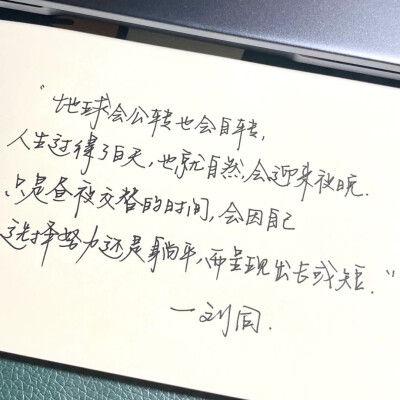 “地球会公转也会自转,
人生过得了白天,也就自然,会迎来夜晚.
只是昼夜交替的时间,会因自己
选择努力还是躺平,而呈现出长或短.”
一刘同.